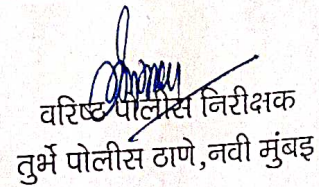 वरिष्ट पोलीस निरीक्षक
तुर्भे पोलीस ठाणे,नवी मुंबइ